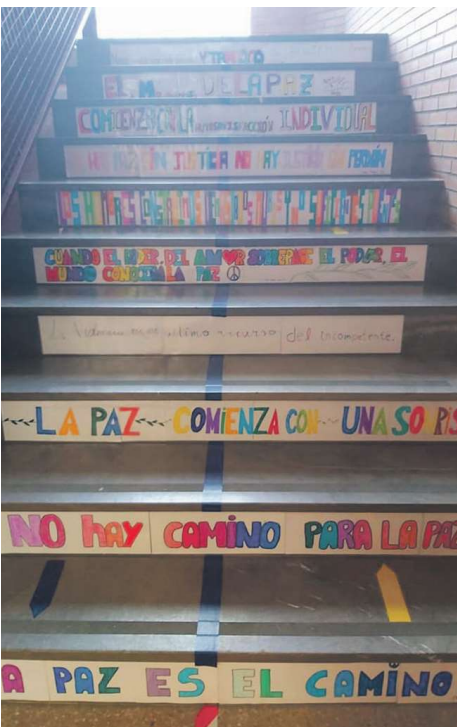 Y TAMPOCO
EL DE LA PAZ
COMIENZA CON LA INDIVIDUAL
NO HAY PAZ SIN JUSTICIA NO HAY JUSTICIA SIN PERDÓN
CUANDO EL PODER DEL AMOR SOBREPASE EL PODER, EL
MUNDO CONOCERÁ LA PAZ
La violencia es el último recurso del incompetente.
LA PAZ COMIENZA CON UNA SONRIS
NO hay CAMiNO PARA LA PAZ
A PAZ ES EL CAMiNO